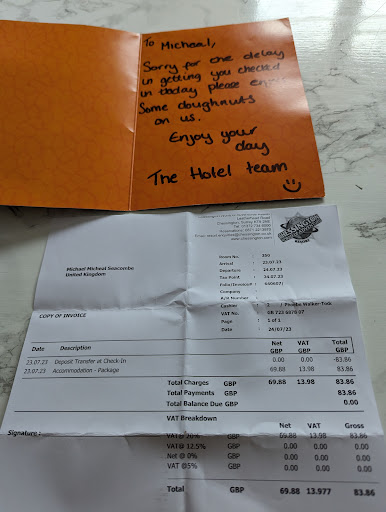 To Micheal,
Sorry for the delay
in getting you checked
in today please enjoy
Some doughnuts
on us.
Enjoy your
day
The Hotel team
Leatherhead Road
Chessington, Surrey KT9 2NE
Michael Micheal Seacombe
United Kingdom
Room No. : 350
Arrival : 23.07.23
Departure : 24.07.23
Tax Point : 24.07.23
Folio/Invoice# :
Company :
A/R Number :
Cashier : / Phoebe Walker-Tods
VAT No. : GB 723 6878 07
Page : 1 of 1
Date : 24/07/23
COPY OF INVOICE
Date Description Net GBP VAT GBP Total GBP
23.07.23 Deposit Transfer at Check-In 0.00 0.00 -83.86
23.07.23 Accommodation - Package 69.88 13.98 83.86
Total Charges GBP 69.88 13.98 83.86
Total Payments GBP 83.86
Total Balance Due GBP 0.00
VAT Breakdown Net VAT Gross
Signature :
VAT@ 20% GBP 69.88 13.98 83.86
VAT @ 12.5% GBP 0.00 0.00 0.00
Net @ 0% GBP 0.00 0.00 0.00
VAT @5% GBP 0.00 0.00 0.00
Total GBP 69.88 13.977 83.86